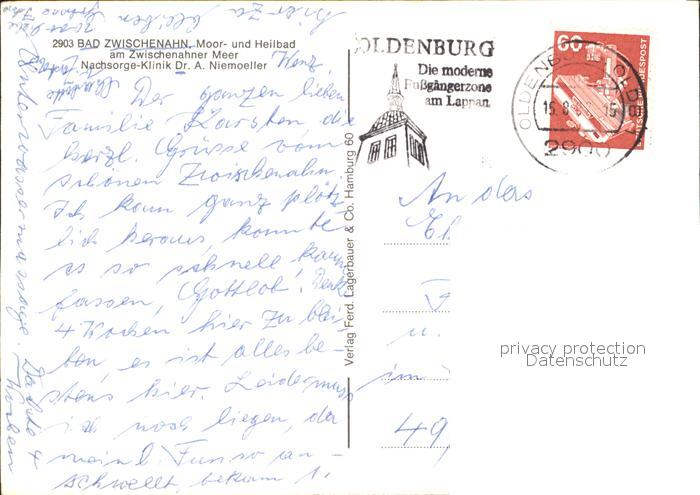 2903 BAD ZWISCHENAHN, Moor- und Heilbad
am Zwischenahner Meer
Nachsorge-Klinik Dr. A. Niemoeller
Der ganzen lieben
Familie Karsten die
herzl. Grüsse vom
schönen Zwischenahn.
Ich kam ganz plötz
lich heraus, konnte
es so schnell kaum
fassen, Gottlob! Denke
4 Wochen hier zu blei
ben, es ist alles be-
stens hier. Leider muss
ich noch liegen, da
mein l. Fuss so an-
schwellt, bekam 1.
Unterwassermassage. Da bade 4
Wochen
Verlag Ferd. Lagerbauer & Co. Hamburg 60
OLDENBURG
Die moderne
Fußgängerzone
am Lappan
OLDENBURG OLDB
15.8
15
2900
60
DEUTSCHE BUNDESPOST
An das
u.
im
49
privacy protection
Datenschutz